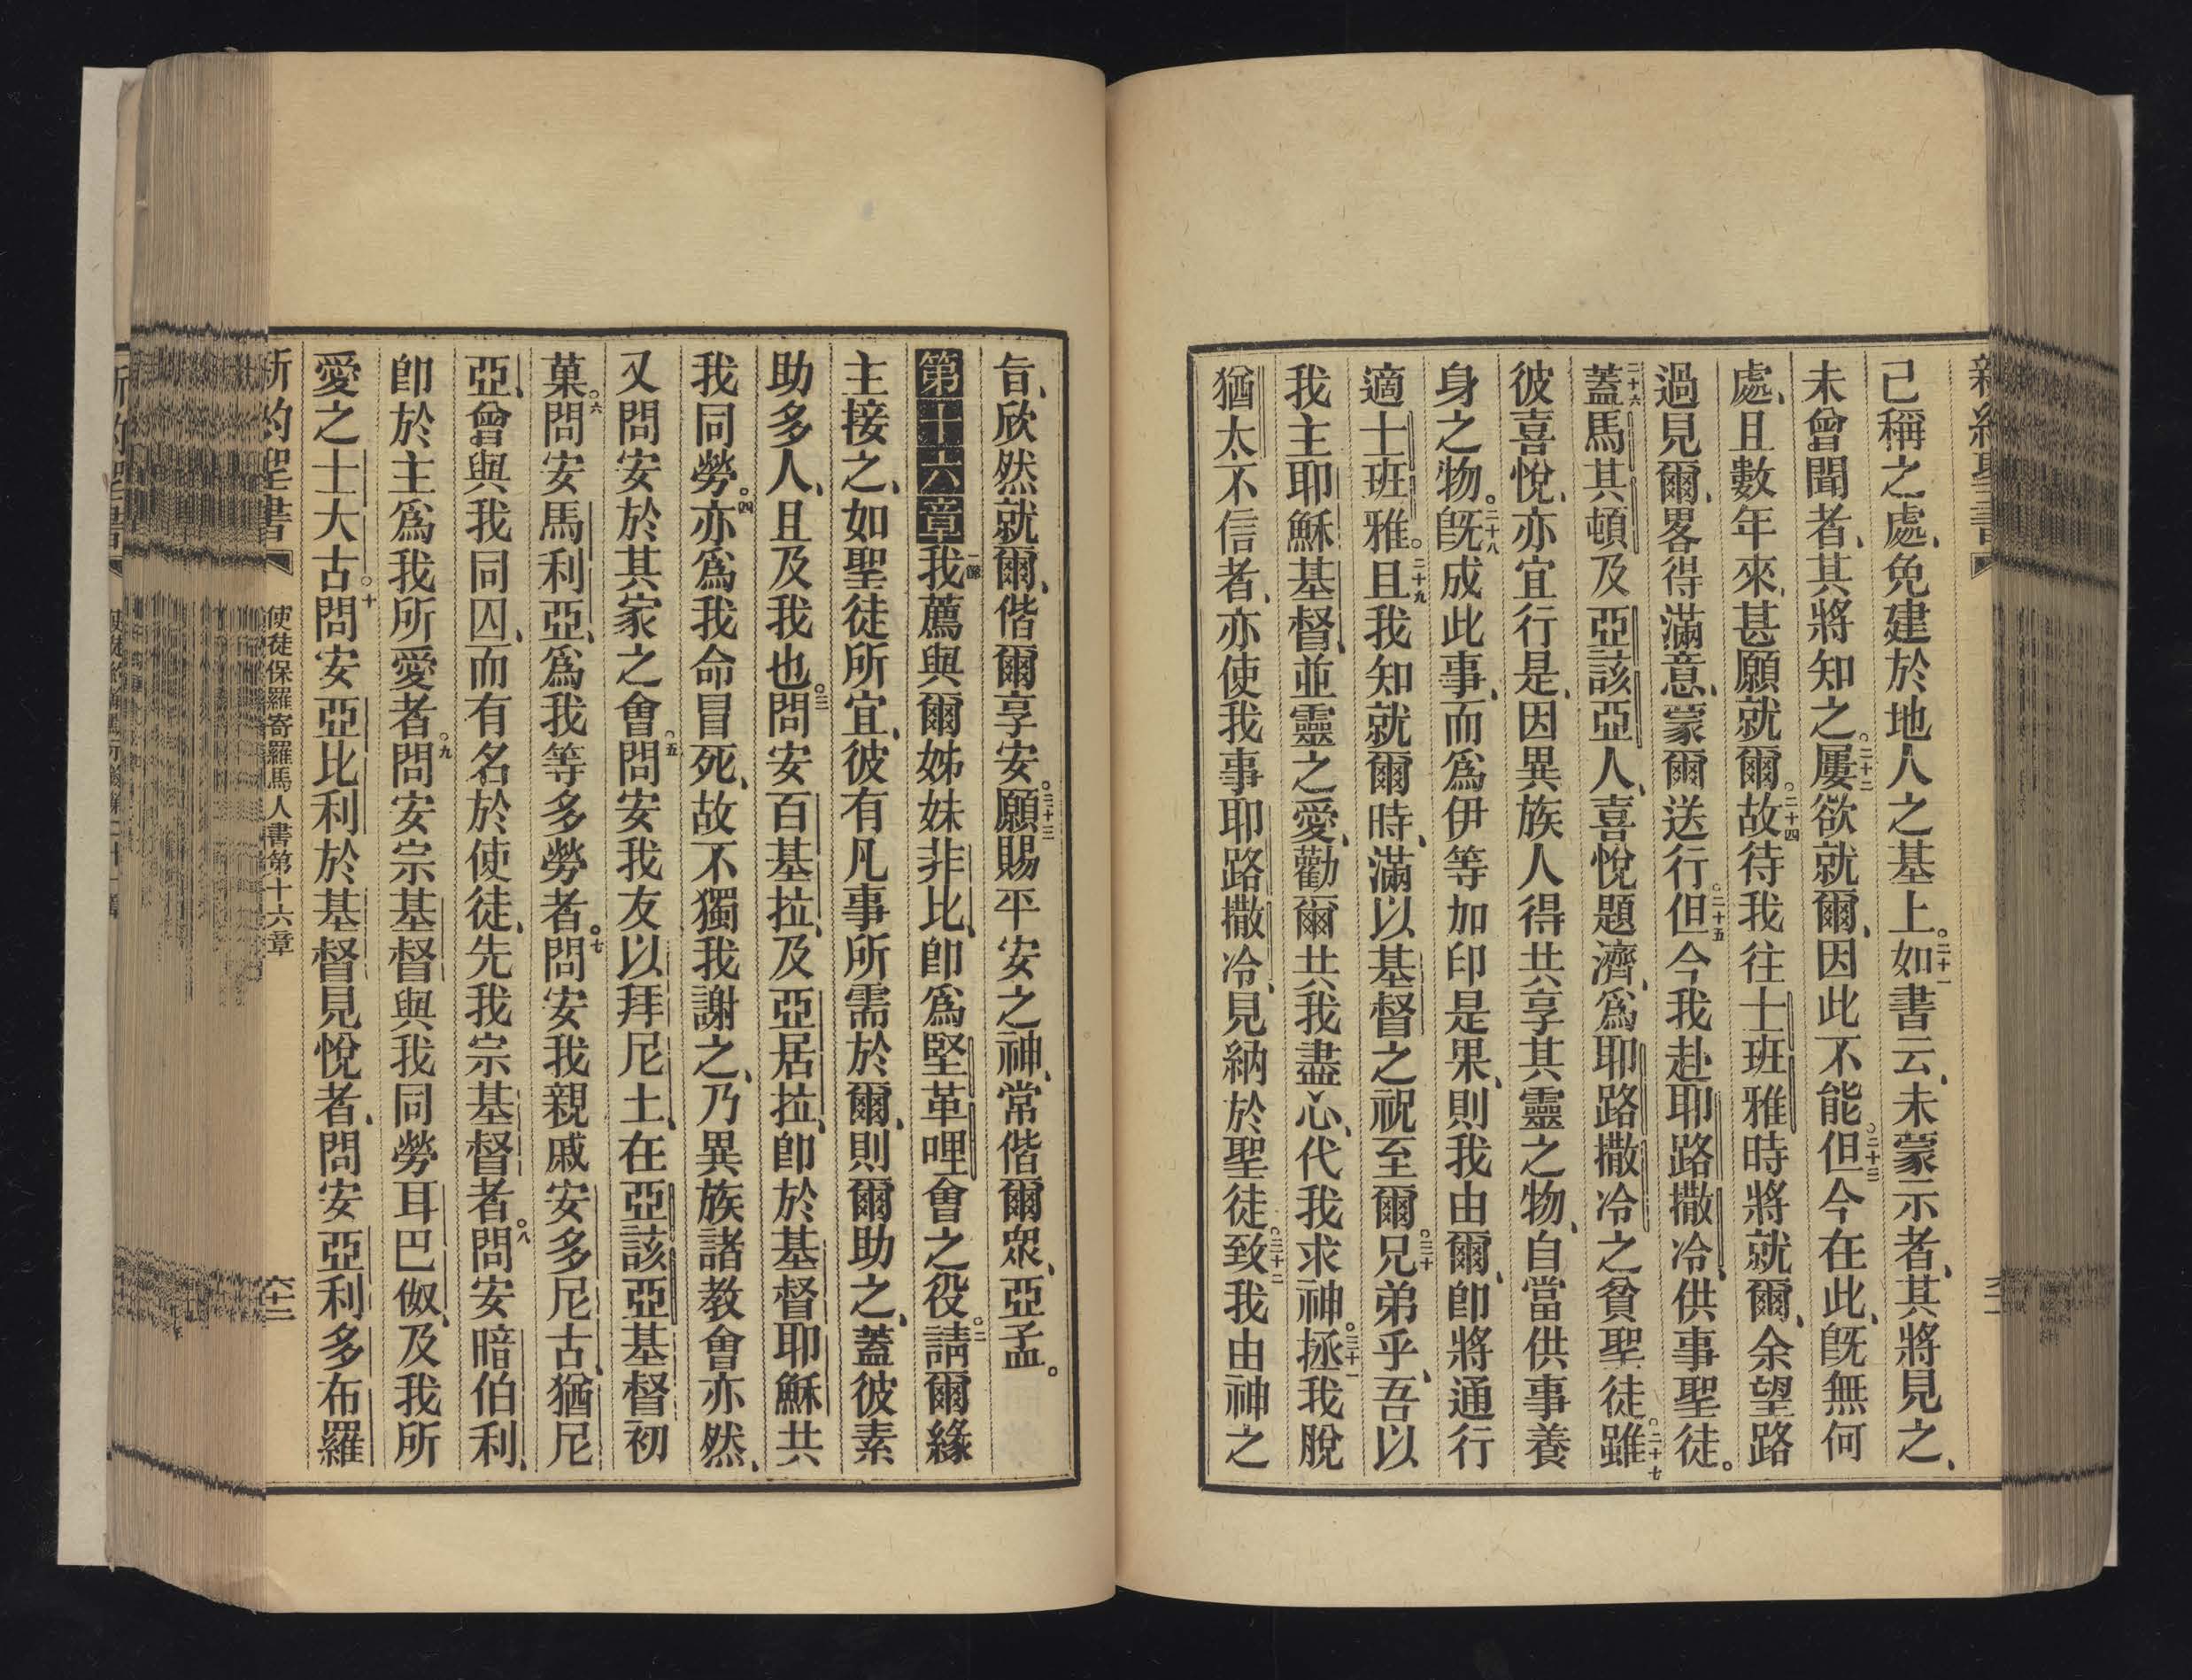 新約聖書
已稱之處、免建於地人之基上。二十一如書云、未蒙示者、其將見之、
未曾聞者、其將知之。二十二屢欲就爾、因此不能。二十三但今在此、旣無何
處、且數年來、甚願就爾。二十四故待我往士班雅時將就爾、余望路
過見爾、畧得滿意、蒙爾送行。二十五但今我赴耶路撒冷、供事聖徒。
二十六蓋馬其頓及亞該亞人、喜悅題濟、爲耶路撒冷之貧聖徒。二十七雖
彼喜悅、亦宜行是、因異族人得共享其靈之物、自當供事養
身之物。二十八旣成此事、而爲伊等加印是果、則我由爾、卽將通行
適士班雅。二十九且我知就爾時、滿以基督之祝至爾。三十兄弟乎、吾以
我主耶穌基督、並靈之愛、勸爾共我盡心、代我求神。三十一拯我脫
猶太不信者、亦使我事耶路撒冷、見納於聖徒。三十二致我由神之
旨、欣然就爾、偕爾享安。三十三願賜平安之神、常偕爾眾、亞孟。
第十六章一節我薦與爾姊妹非比、卽爲堅革哩會之役。二請爾緣
主接之、如聖徒所宜、彼有凡事所需於爾、則爾助之、蓋彼素
助多人、且及我也。三問安百基拉、及亞居拉、卽於基督耶穌共
我同勞。四亦爲我命冒死、故不獨我謝之、乃異族諸教會亦然、
又問安於其家之會。五問安我友以拜尼土、在亞該亞基督初
菓。六問安馬利亞、爲我等多勞者。七問安我親戚安多尼古、猶尼
亞、曾與我同囚、而有名於使徒、先我宗基督者。八問安暗伯利、
卽於主爲我所愛者。九問安宗基督與我同勞耳巴伮、及我所
愛之士大古。十問安亞比利於基督見悅者、問安亞利多布羅
新約聖書 使徒保羅寄羅馬人書第十六章 六十二